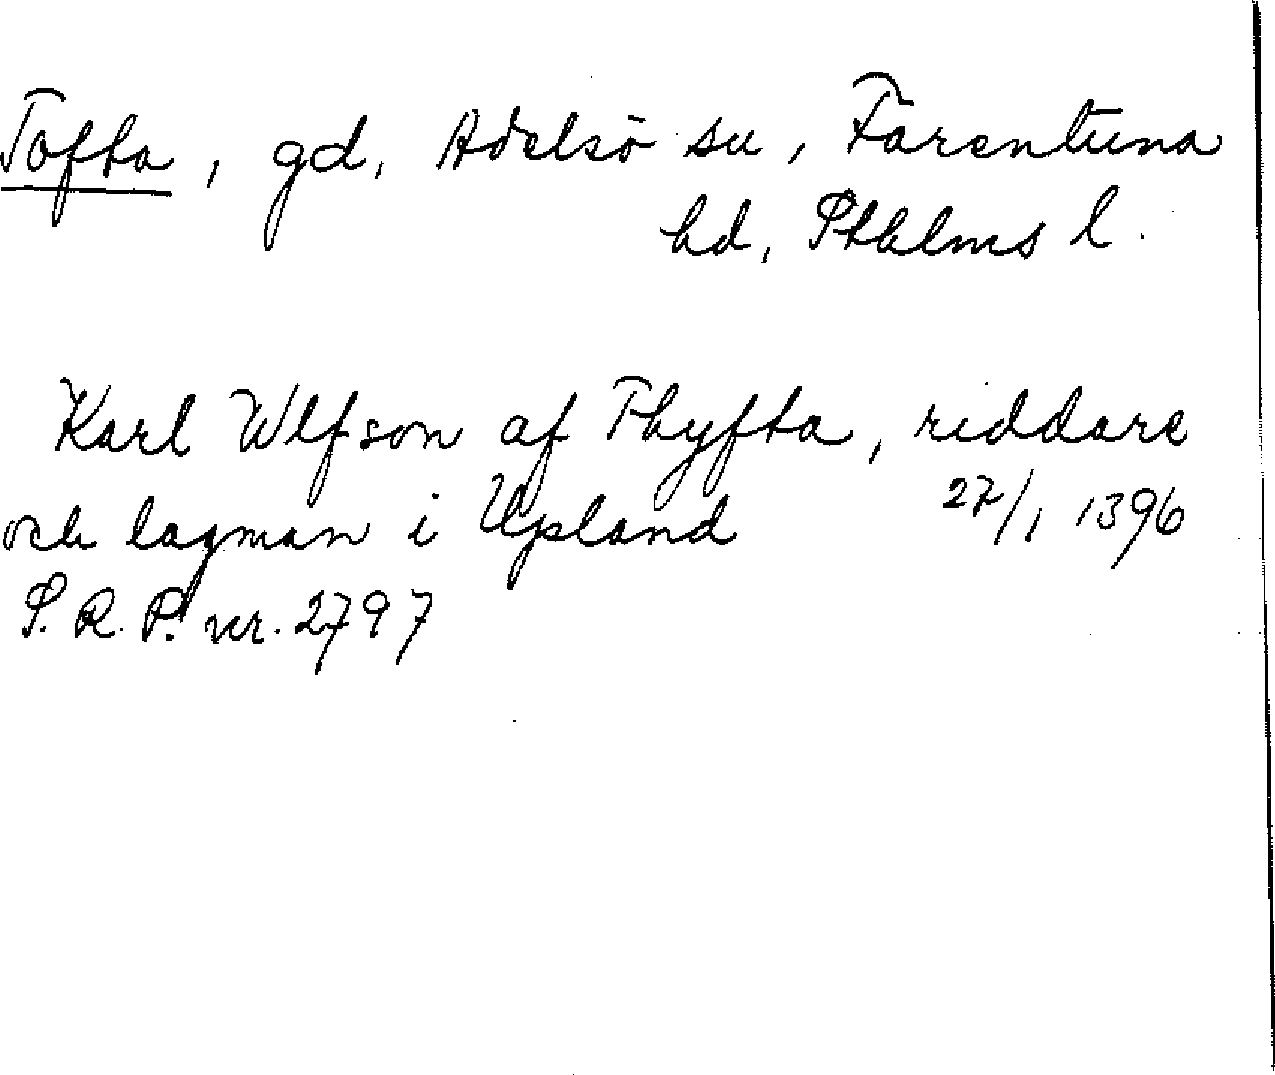 Tofta, gd, Adelsö sn, Färentuna
hd, Sthlms l.
Karl Wlfson af Thyfta, riddare
och lagman i Upland 27/1 1396
S. R. P. nr. 2797